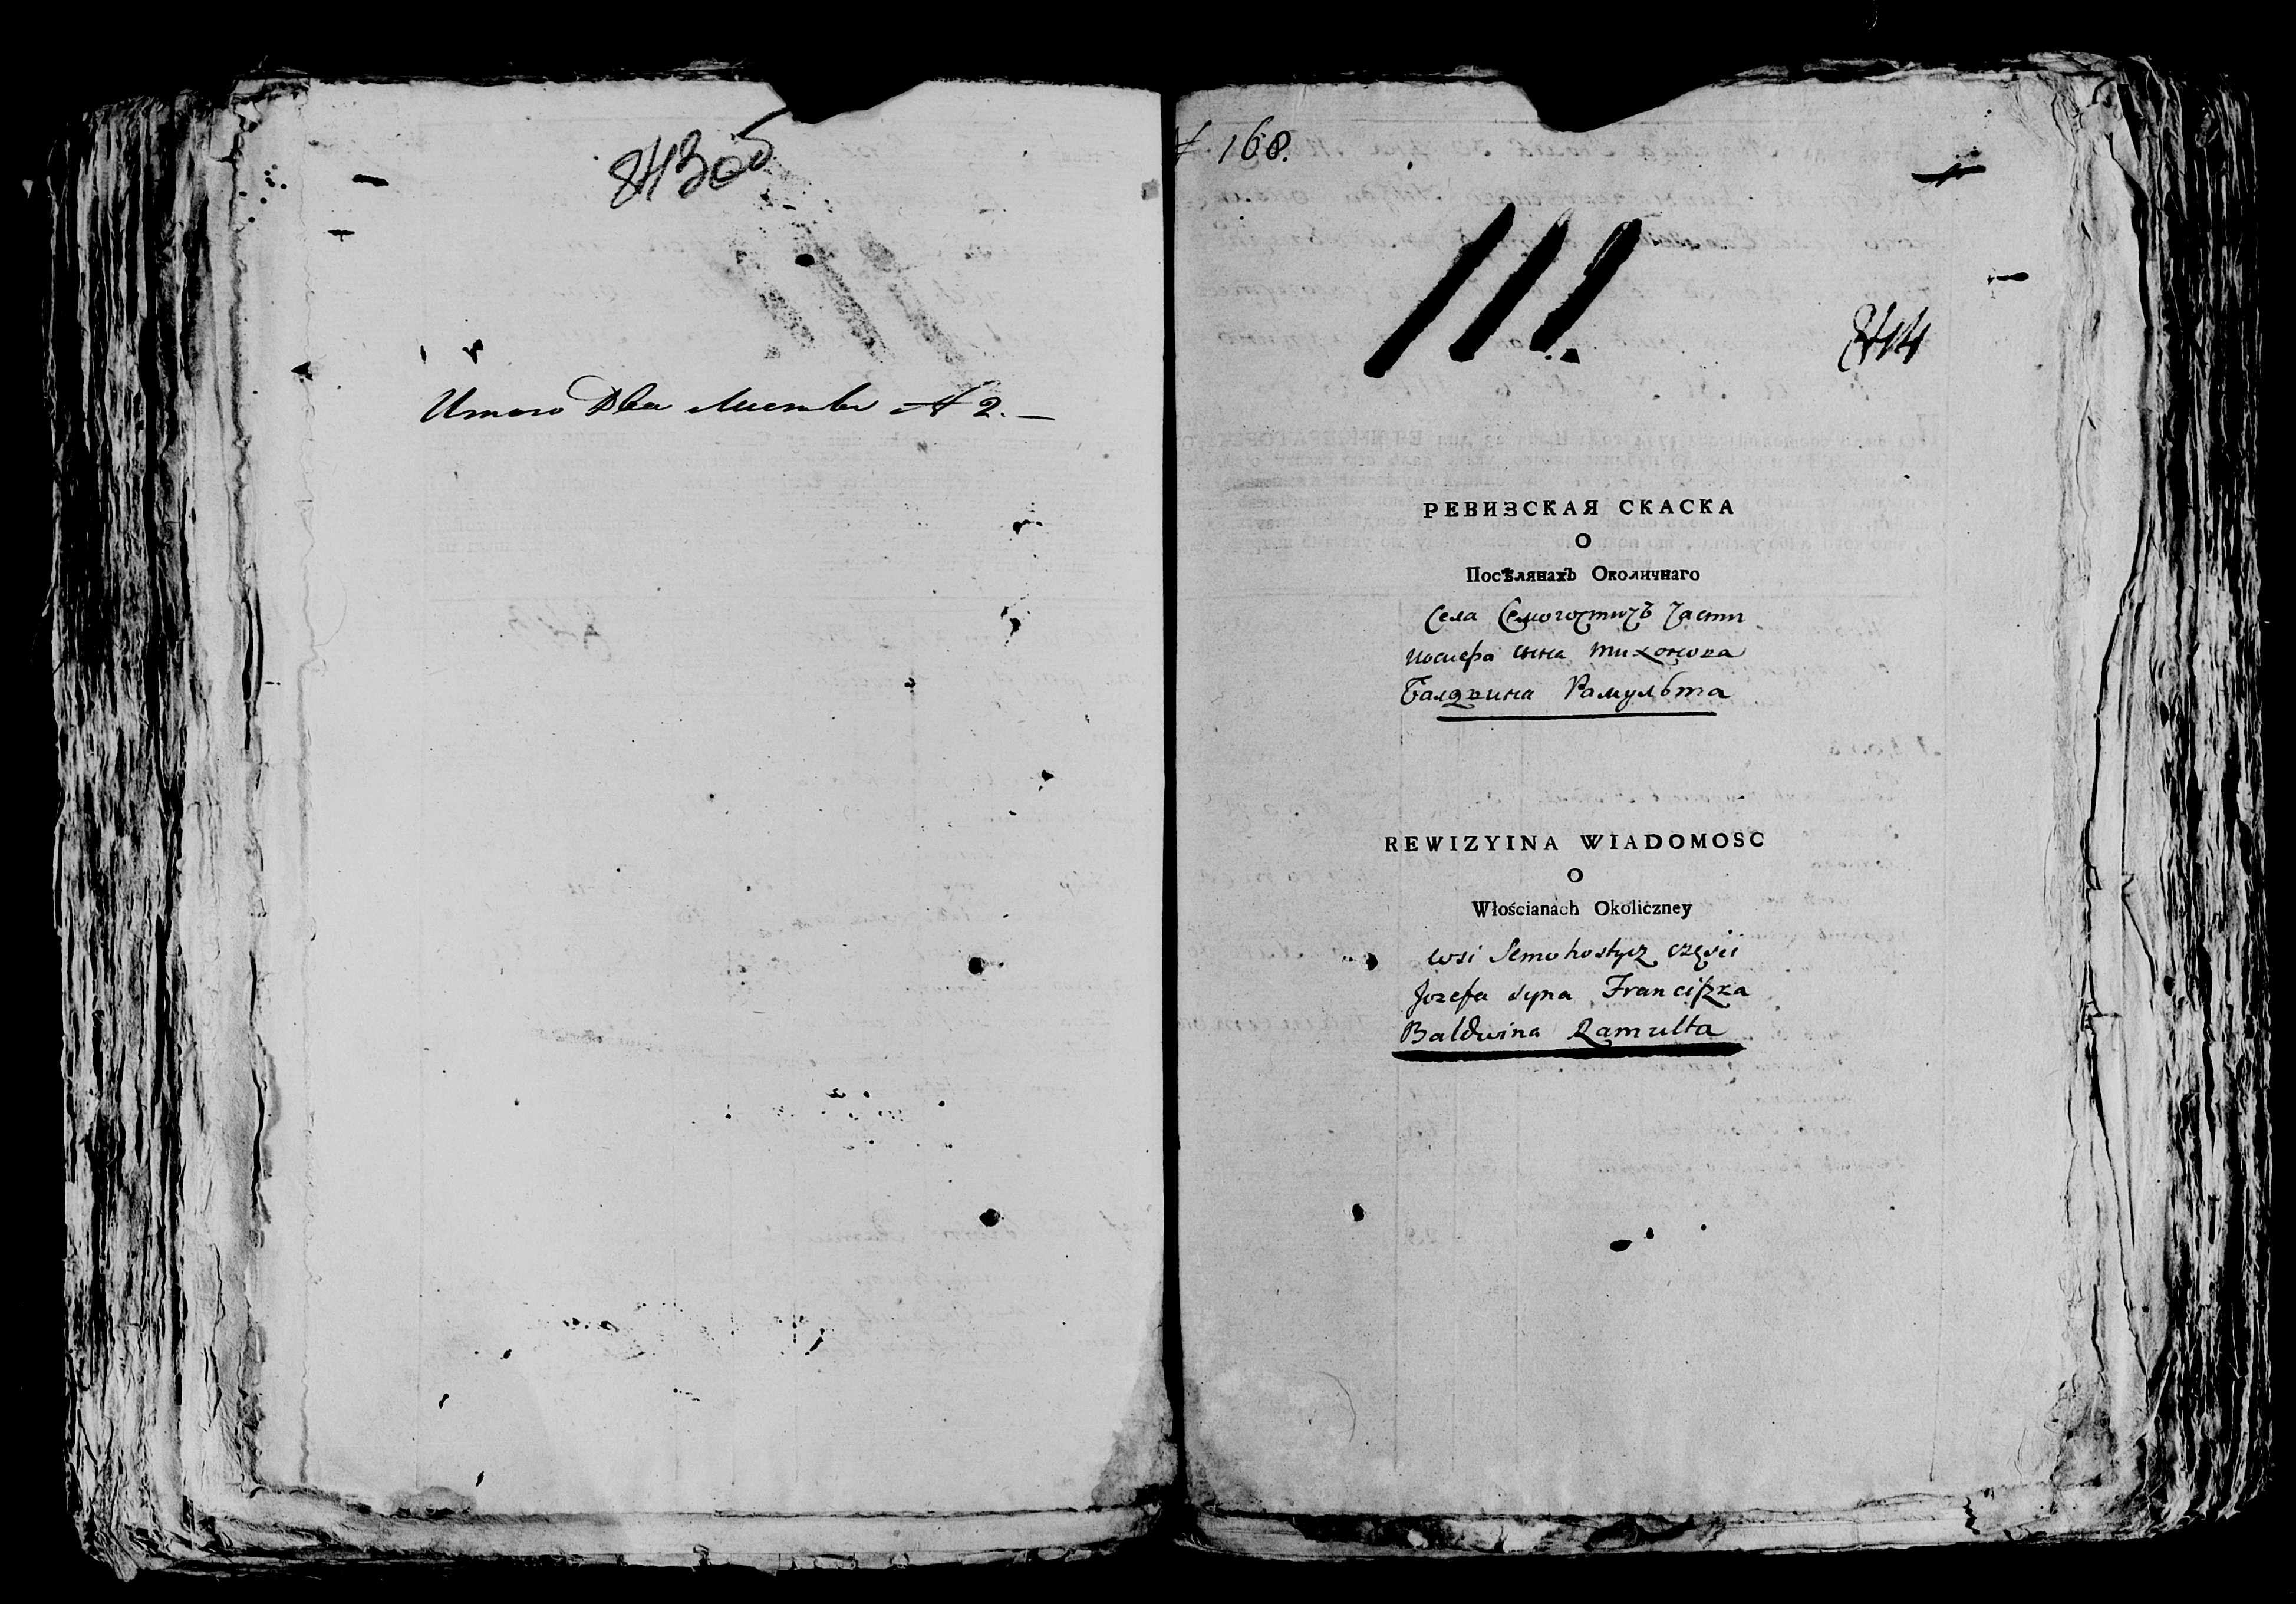 843об
Итого Два листы № 2. —
№ 168.
111.
844
РЕВИЗСКАЯ СКАСКА
О
Посѣлянахъ Околичнаго
Села Семогостичъ Части
сына
Балдвина Рамульта
REWIZYINA WIADOMOSC
O
Włościanach Okoliczney
wsi Semohostycz części
Jozefa syna Franciszka
Baldwina Ramulta